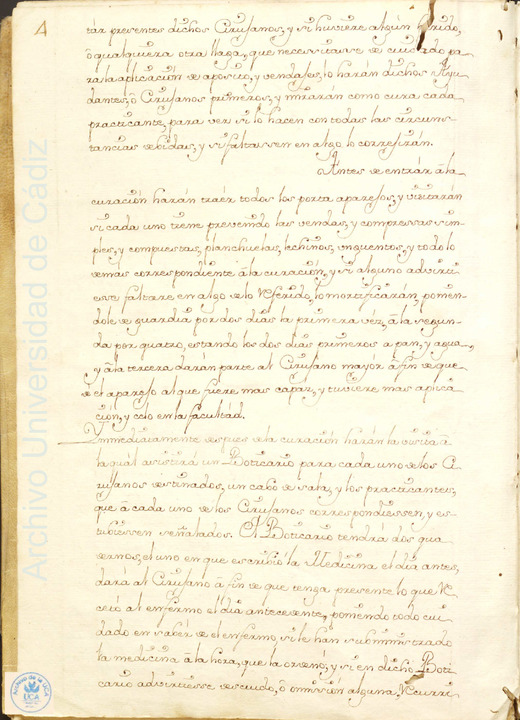 4
tár presentes dichos Cirujanos, y si huviere algún herido,
ô qualquiera otra llaga, que necesitasse de cuidado pa-
ra la aplicación de aposito, y vendages, lo harán dichos Ayu-
dantes, ô Cirujanos primeros, y mirarán como cura cada
practicante, para ver si lo hacen con todas las circuns-
tancias debidas, y si faltassen en algo lo corregirán.
Antes de entrár âla
curación harán traér todos los porta aparejos, y visitarán
si cada uno tiene prevenido las vendas, y compressas sim-
ples, y compuestas, planchuelas, lechinos, unguentos, y todo lo
demas correspondiente âla curación, y si alguno advirti-
esse faltarle en algo delo referido, lo mortificarán, ponien-
dole de guardia por dos dias la primera véz, âla segun-
da por quatro, estando los dos dias primeros a pan, y agua,
y âla tercera darán parte al Cirujano mayór â fin de que
dé el aparejo al que fuere mas capáz, y tuviere mas aplica-
ción, y celo en la facultad.
Ymmediatamente despues dela curación harán la visita â
la quál asistirá un Boticario para cada uno delos Ci-
rujanos destinados, un cabo de sala, y los practicantes,
que â cada uno de los Cirujanos correspondiessen, y es-
tubiessen señalados. El Boticario tendra dos qua-
dernos, el uno en que escribió la Medicina el dia antes,
dará al Cirujano â fin de que tenga presente lo que Re-
cetó al enfermo el dia antecedente, poniendo todo cui-
dado en sabér de el enfermo, si le han subministrado
la medicina âla hora, que la ordenó, y si en dicho Boti-
cario advirtiesse descuido, ô omissión alguna, Recurri-
Archivo Universidad de Cádiz
Archivo de la UCA
UCA